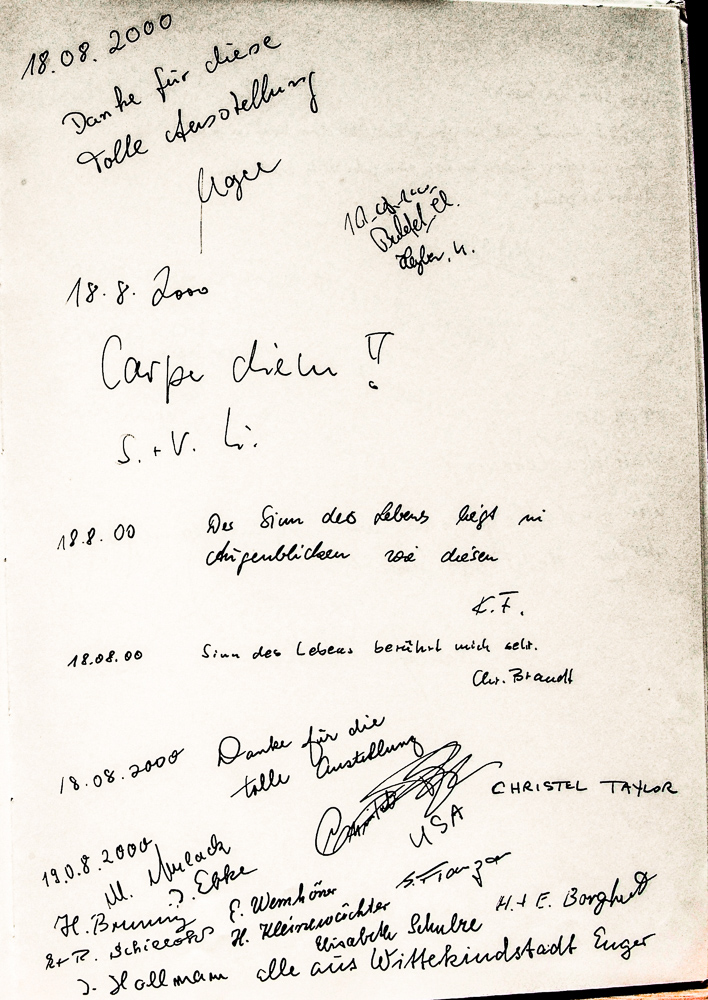 18.08.2000
Danke für diese
tolle Ausstellung
18.8.2000
Carpe diem!
S.+V. Li.
18.8.00 Der Sinn des Lebens liegt in
Augenblicken wie diesen
K.F.
18.08.00 Sinn des Lebens berührt mich sehr.
Chr. Brandt
18.08.2000 Danke für die
tolle Ausstellung
CHRISTEL TAYLOR
USA
19.0.8.2000
M.
H. Bruning J. Ebke
E. Wemhöner S. Franzar
H. Kleinewächter H. + E. Borghutt
Elisabeth Schulze
J. Hollmann alle aus Wittekindstadt Enger